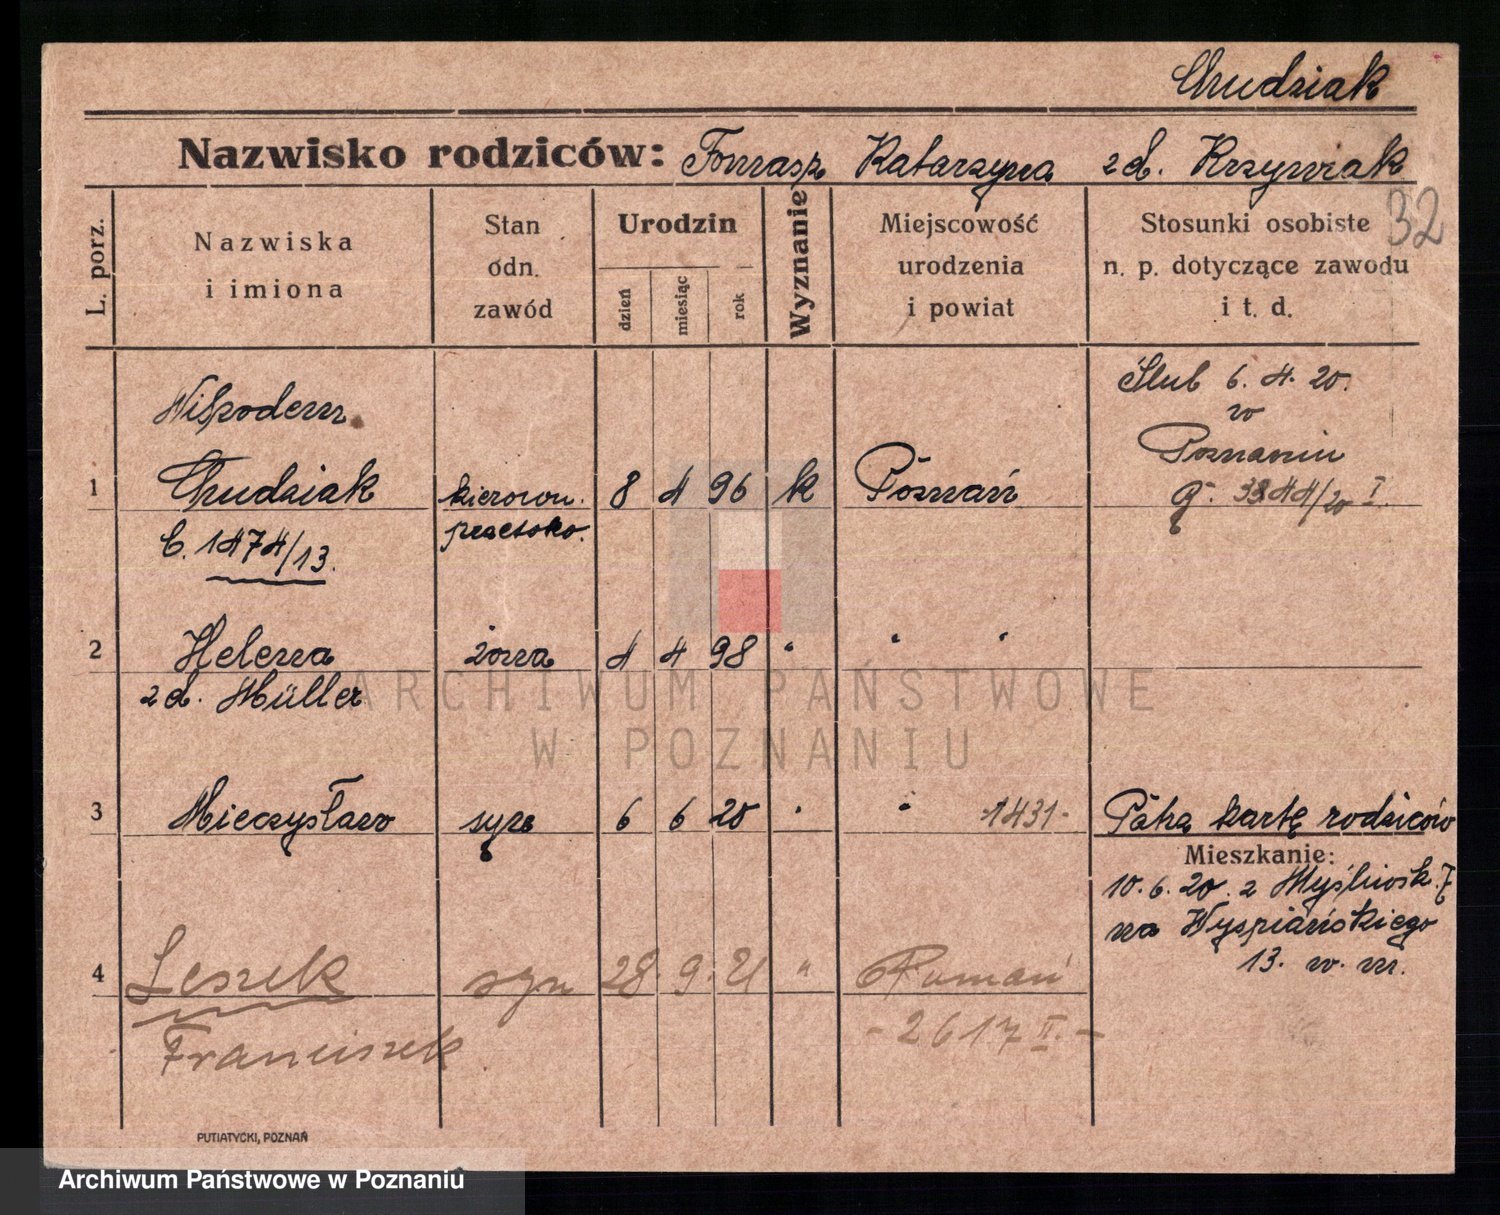 Chudziak
Nazwisko rodziców: Tomasz Katarzyna zd. Krzywiak
32
L. porz.
Nazwiska
i imiona
Stan
odn.
zawód
Urodzin
dzień
miesiąc
rok
Wyznanie
Miejscowość
urodzenia
i powiat
Stosunki osobiste
n. p. dotyczące zawodu
i t. d.
Ślub 6. 4. 20.
w
Poznaniu
1 Chudziak kierown. 8 4 96 k Poznań
C. 1474/13.
2 Helena żona 4 4 98 " " "
zd. Müller
3 Mieczysław syn 6 6 20 " " -1431- kartę rodziców
Mieszkanie:
10. 6. 20. z
na Wyspiańskiego
13. w. m.
4 Leszek syn 28. 9. 21 " Poznań
Franciszek - 2617 II. -
PUTIATYCKI, POZNAŃ
ARCHIWUM PAŃSTWOWE
W POZNANIU
Archiwum Państwowe w Poznaniu